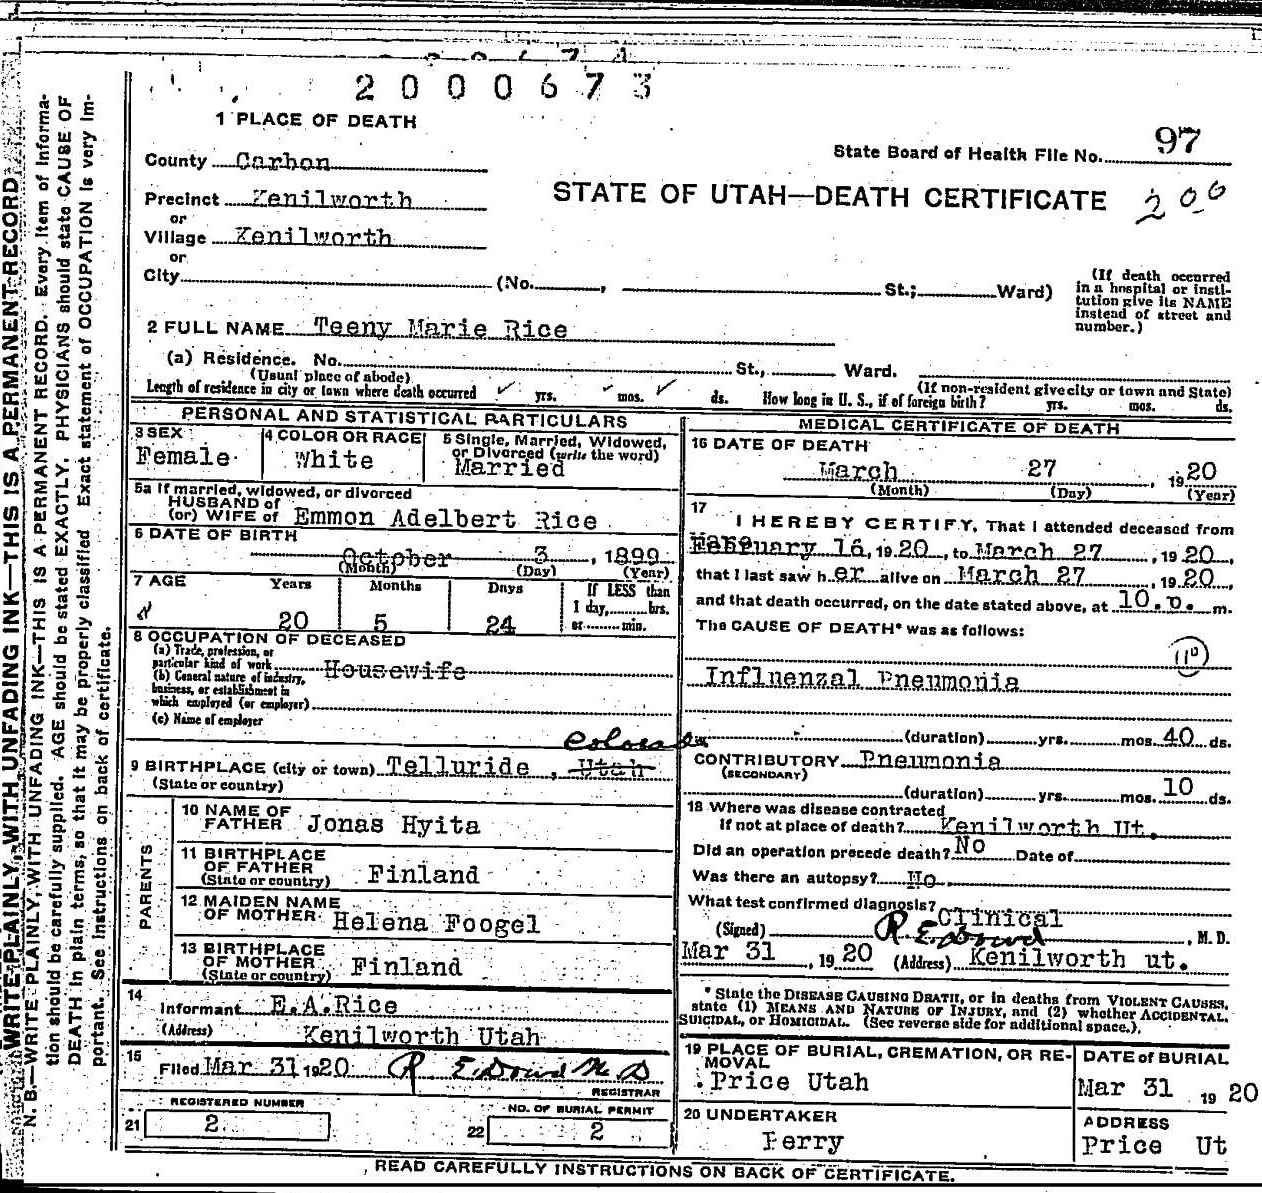 2000673
1 PLACE OF DEATH
State Board of Health File No. 97
County Carbon
STATE OF UTAH—DEATH CERTIFICATE
200
Precinct Kenilworth
or
Village Kenilworth
or
City (No. , St.; Ward)
(If death occurred in a hospital or institution give its NAME instead of street and number.)
2 FULL NAME Teeny Marie Rice
(a) Residence. No. St., Ward.
(Usual place of abode) (If non-resident give city or town and State)
Length of residence in city or town where death occurred yrs. mos. ds. How long in U. S., if of foreign birth? yrs. mos. ds.
PERSONAL AND STATISTICAL PARTICULARS
3 SEX Female
4 COLOR OR RACE White
5 Single, Married, Widowed, or Divorced (write the word) Married
5a If married, widowed, or divorced
HUSBAND of
(or) WIFE of Emmon Adelbert Rice
6 DATE OF BIRTH
October 3, 1899
(Month) (Day) (Year)
7 AGE Years Months Days If LESS than
1 day, hrs.
20 5 24 or min.
8 OCCUPATION OF DECEASED
(a) Trade, profession, or
particular kind of work Housewife
(b) General nature of industry,
business, or establishment in
which employed (or employer)
(c) Name of employer
Colorado
9 BIRTHPLACE (city or town) Telluride, Utah
(State or country)
PARENTS
10 NAME OF FATHER Jonas Hyita
11 BIRTHPLACE OF FATHER
(State or country) Finland
12 MAIDEN NAME OF MOTHER Helena Foogel
13 BIRTHPLACE OF MOTHER
(State or country) Finland
14
Informant E.A.Rice
(Address) Kenilworth Utah
15
Filed Mar 31 1920 R E Dowd M D
REGISTRAR
REGISTERED NUMBER
21 2
NO. OF BURIAL PERMIT
22 2
MEDICAL CERTIFICATE OF DEATH
16 DATE OF DEATH
March 27 1920
(Month) (Day) (Year)
17
I HEREBY CERTIFY, That I attended deceased from
February 16, 1920, to March 27, 1920,
that I last saw her alive on March 27, 1920,
and that death occurred, on the date stated above, at 10.p. m.
The CAUSE OF DEATH* was as follows:
Influenzal Pneumonia
(duration) yrs. mos. 40 ds.
CONTRIBUTORY Pneumonia
(SECONDARY)
(duration) yrs. mos. 10 ds.
18 Where was disease contracted
If not at place of death? Kenilworth Ut.
Did an operation precede death? No Date of
Was there an autopsy? No
What test confirmed diagnosis? Clinical
(Signed) R. E. Dowd, M. D.
Mar 31, 1920 (Address) Kenilworth ut.
* State the DISEASE CAUSING DEATH, or in deaths from VIOLENT CAUSES,
state (1) MEANS AND NATURE OF INJURY, and (2) whether ACCIDENTAL,
SUICIDAL, or HOMICIDAL. (See reverse side for additional space.)
19 PLACE OF BURIAL, CREMATION, OR REMOVAL
Price Utah
DATE of BURIAL
Mar 31 1920
20 UNDERTAKER
Perry
ADDRESS
Price Ut
READ CAREFULLY INSTRUCTIONS ON BACK OF CERTIFICATE.
WRITE PLAINLY, WITH UNFADING INK—THIS IS A PERMANENT RECORD
N. B.—WRITE PLAINLY, WITH UNFADING INK—THIS IS A PERMANENT RECORD. Every Item of Informa-
tion should be carefully supplied. AGE should be stated EXACTLY. PHYSICIANS should state CAUSE OF
DEATH in plain terms, so that it may be properly classified. Exact statement of OCCUPATION is very Im-
portant. See Instructions on back of certificate.